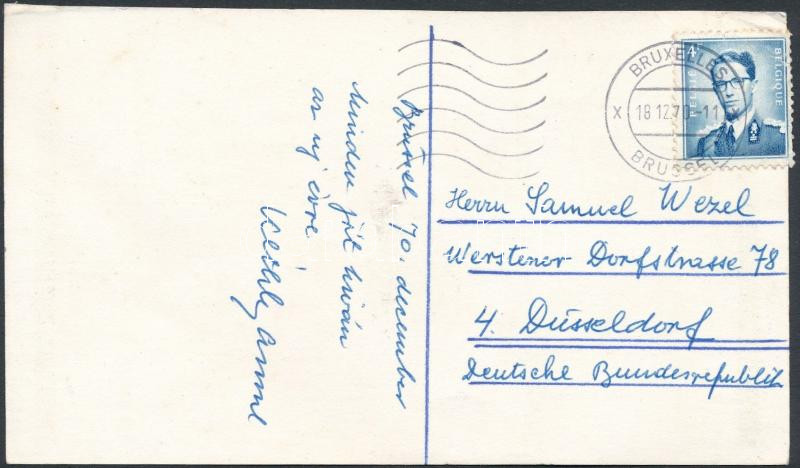 Brüssel 70. december
Minden jót kíván
az uj évre
BRUXELLES
X 18.12.70-11
BRUSSEL
4F
BELGIE
BELGIQUE
Herrn Samuel Wezel
Werstener Dorfstrasse 78
4. Düsseldorf
Deutsche Bundesrepublik